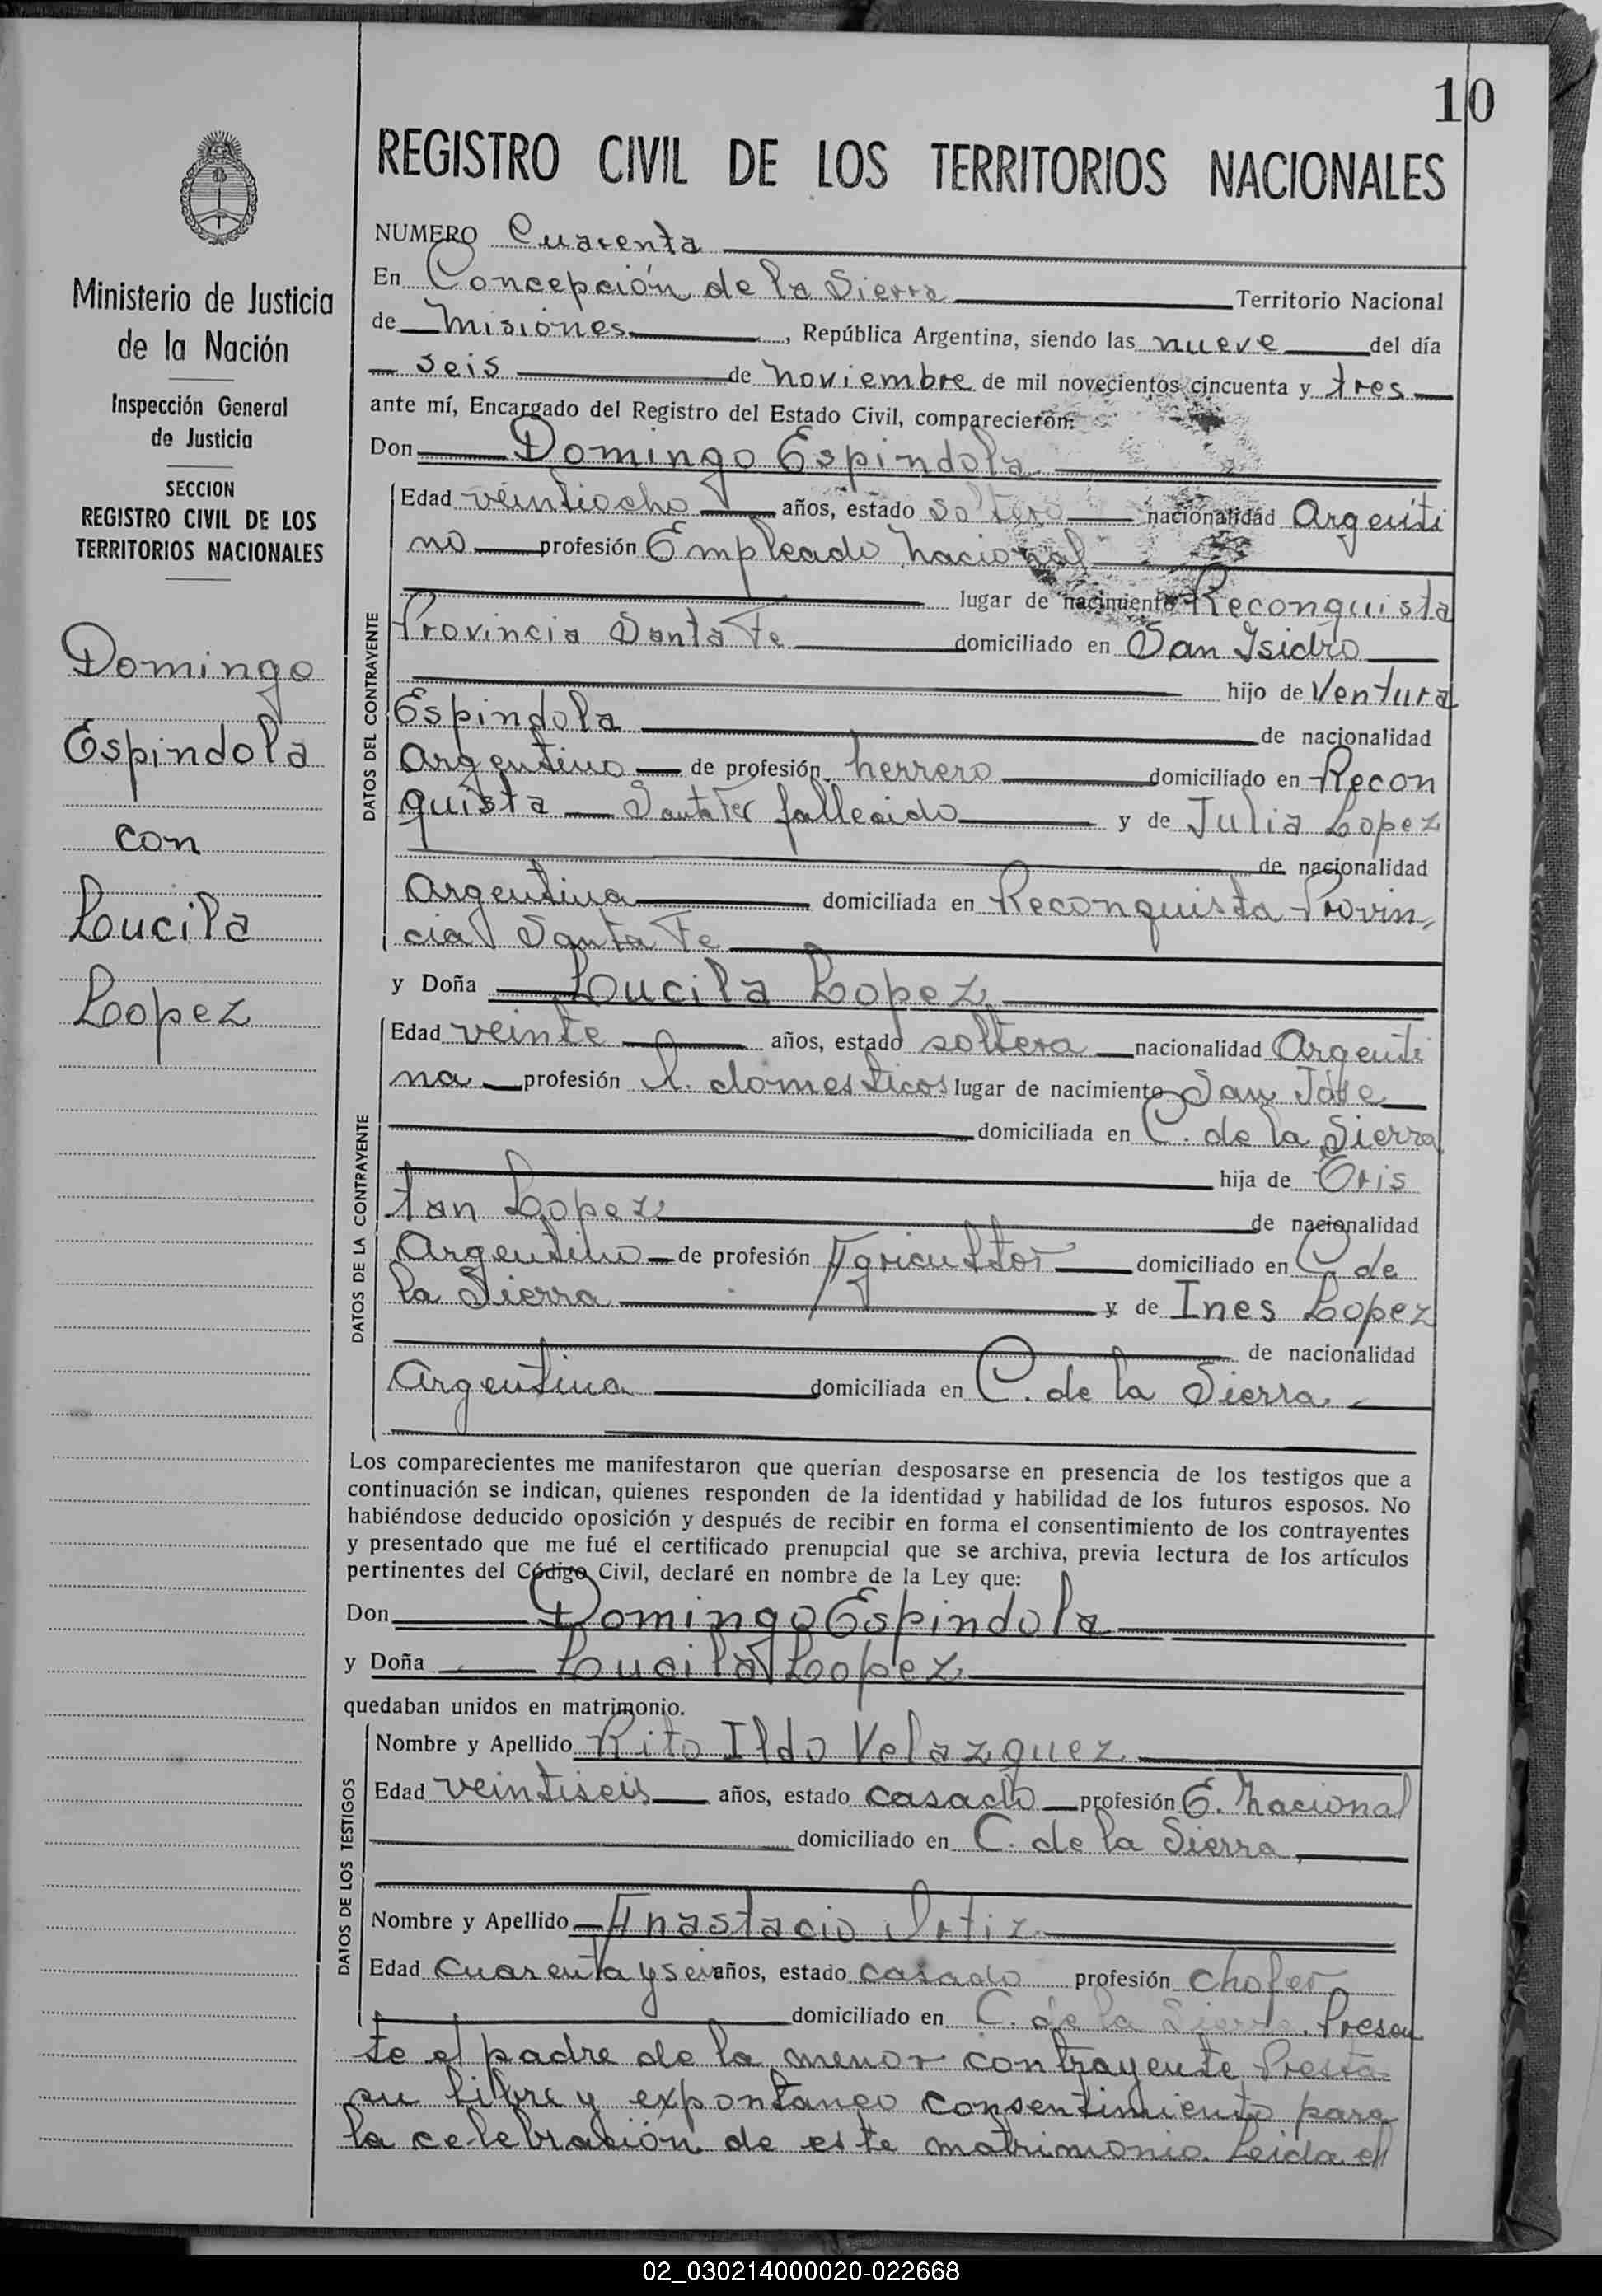 10
REGISTRO CIVIL DE LOS TERRITORIOS NACIONALES
Ministerio de Justicia
de la Nación
Inspección General
de Justicia
SECCION
REGISTRO CIVIL DE LOS
TERRITORIOS NACIONALES
Domingo
Espindola
con
Lucila
Lopez
NUMERO Cuarenta
En Concepción de la Sierra Territorio Nacional
de Misiones, República Argentina, siendo las nueve del día
seis de Noviembre de mil novecientos cincuenta y tres
ante mí, Encargado del Registro del Estado Civil, comparecieron:
Don Domingo Espindola
DATOS DEL CONTRAYENTE
Edad veintiocho años, estado soltero nacionalidad Argenti
no profesión Empleado Nacional
lugar de nacimiento Reconquista
Provincia Santa Fe domiciliado en San Isidro
hijo de Ventura
Espindola de nacionalidad
Argentino de profesión herrero domiciliado en Recon
quista Santa Fe fallecido y de Julia Lopez
de nacionalidad
Argentina domiciliada en Reconquista Provin
cia Santa Fe
y Doña Lucila Lopez
DATOS DE LA CONTRAYENTE
Edad veinte años, estado soltera nacionalidad Argenti
na profesión Q. domesticos lugar de nacimiento San José
domiciliada en C. de la Sierra
hija de Cris
tan Lopez de nacionalidad
Argentino de profesión Agricultor domiciliado en C. de
la Sierra y de Ines Lopez
de nacionalidad
Argentina domiciliada en C. de la Sierra
Los comparecientes me manifestaron que querían desposarse en presencia de los testigos que a
continuación se indican, quienes responden de la identidad y habilidad de los futuros esposos. No
habiéndose deducido oposición y después de recibir en forma el consentimiento de los contrayentes
y presentado que me fué el certificado prenupcial que se archiva, previa lectura de los artículos
pertinentes del Código Civil, declaré en nombre de la Ley que:
Don Domingo Espindola
y Doña Lucila Lopez
quedaban unidos en matrimonio.
DATOS DE LOS TESTIGOS
Nombre y Apellido Rito Ildo Velazquez
Edad veintiseis años, estado casado profesión E. Nacional
domiciliado en C. de la Sierra,
Nombre y Apellido Anastacio Ortiz
Edad cuarenta y seis años, estado casado profesión chofer
domiciliado en C. de la Sierra. Presen
te el padre de la menor contrayente Presta
su libre y expontaneo consentimiento para
la celebración de este matrimonio. Leida el
02_030214000020-022668